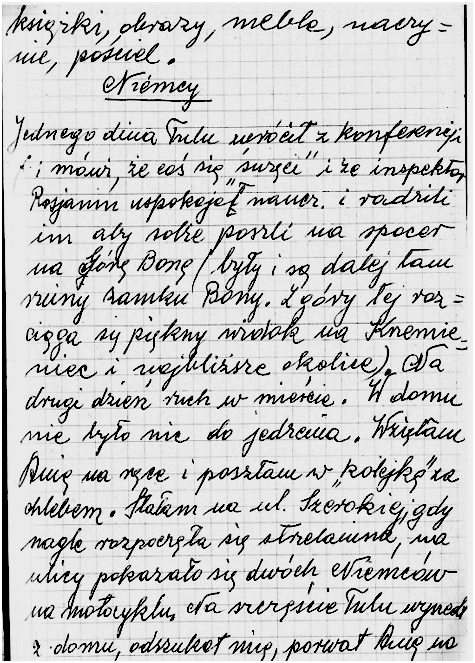 książki, obrazy, meble, naczy=
nie, pościel.
Niemcy
Jednego dnia Tulu wrócił z konferencji
i mówi, że coś się "święci" i że inspektor
Rosjanin uspokajał naucz. i radzili
im aby sobie poszli na spacer
na Górę Bonę (były i są dalej tam
ruiny zamku Bony. Z góry tej roz=
ciąga się piękny widok na Krzemie=
niec i najbliższe okolice). Na
drugi dzień ruch w mieście. W domu
nie było nic do jedzenia. Wzięłam
Anię na ręce i poszłam w "kolejkę" za
chlebem. Stałam na ul. Szerokiej, gdy
nagle rozpoczęła się strzelanina, na
ulicy pokazało się dwóch Niemców
na motocyklu. Na szczęście Tulu wyszedł
z domu, odszukał mię, porwał Anię na